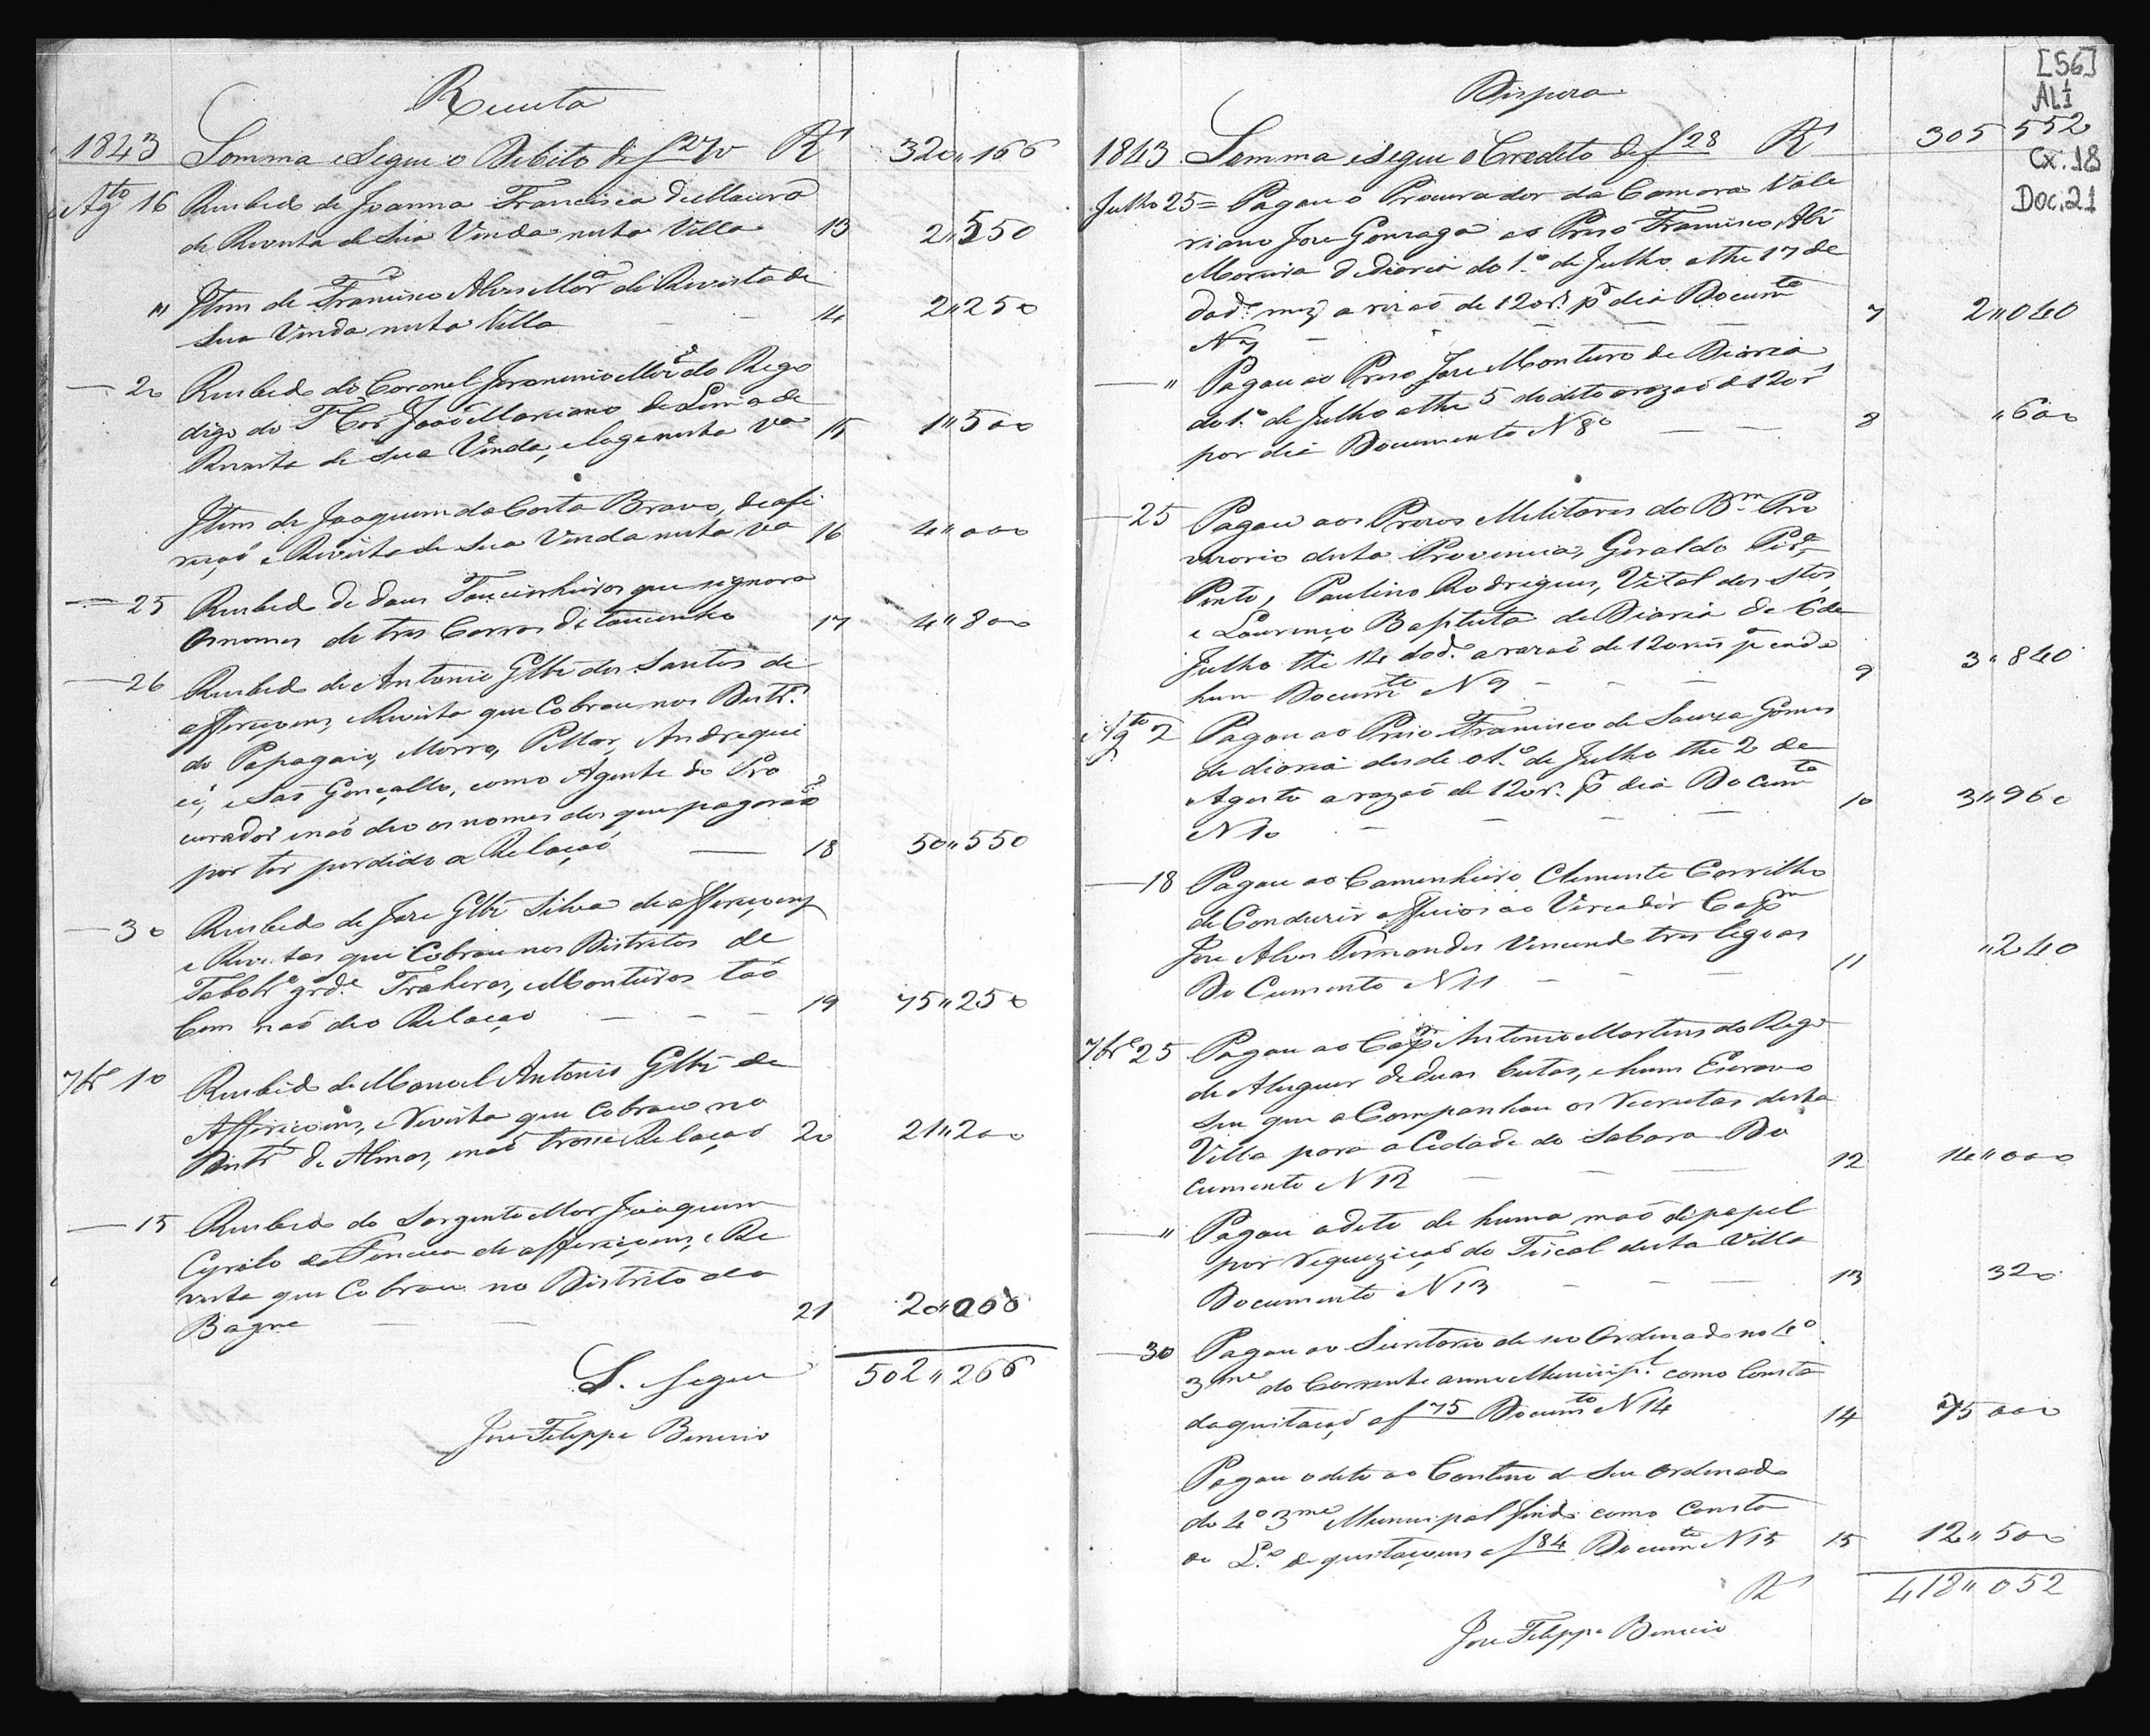 Receita
1843 Somma e Segue o Debito de f 27v R' 320"166
Agto 16 Recebido de Joanna Francisca
de Revista de Sua Venda nesta Villa 13 2"550
" Item de Francisco Alves de Revista de
Sua Venda nesta Villa 14 2"250
— 20 Recebido do Coronel Jeronimo do Rego
digo do João Mariano de Lima de
Revista de Sua Venda, e loge nesta Va 15 1"500
Item de Joaquim da Costa Bravo, de afe
riçaõ e Revista de Sua Venda nesta Va 16 4"000
— 25 Recebido de dous Toucinheiros que se ignora
os nomes de tres Carros de toucinho 17 4"800
— 26 Recebido de Antonio Glz' dos Santos de
afferiçoens, e Revista que Cobrou nos Distr.
do Papagaio, Morro, Pillar, Andrequi
cé, e Saõ Gonçallo, como Agente do Pro
curador e naõ deo os nomes dos que pagaraõ
por ter perdido a Relaçaõ — 18 50"550
— 30 Recebido de Joze Glz' Silva de afferiçoens
e Revistas que Cobrou nos Distritos de
Tabolro grd.e Trahiras, e Monteiros taõ
bem naõ deo Relaçaõ — — — 19 75"250
7br 10 Recebido de Manoel Antonio Glz' de
Afferiçoens, e Revista que Cobrou no
Distr.o de Almas, e naõ troxe Relaçaõ 20 21"200
— 15 Recebido do Sargento Mor Joaquim
Cyrilo da Fonceca de afferiçoens, e Re
vista que Cobrou no Distrito do
Bagre — — 21 20"000
S. Segue 502"266
Joze Felippe Benicio
Dispeza
[56]
AL 1/1
1843 Somma e Segue o Credito de f 28 R' 305 552
Cx. 18
Doc. 21
Julho 25 = Pagou o Procurador da Camara Vale
riano Joze Gonzaga ao Prezo Francisco
Moreira de diaria do 1.o de Julho athe 17 de
dod.o mez a rezaõ de 120r.s pr dia Documto
N 7 — — — — 7 2"040
— " Pagou ao Prezo Joze Monteiro de Diaria
do 1.o de Julho athe 5 do dito a razaõ de 120 r'
por dia Documento N 8o — — 8 "600
— 25 Pagou aos Prezos Melitares do Bm Pro
vizorio desta Provincia, Geraldo
Pinto, Paulino Rodrigues, Vital dos Stos,
e Lourenço Baptista de Diaria de 6 de
Julho the 14 dod.o a razaõ de 120 reis pr cada
hum Documto N 9 — — — 9 3"840
Agto 2 Pagou ao Prezo Francisco de Souza Gomes
de diaria desde o 1.o de Julho the 2 de
Agosto a razaõ de 120 r.s pr dia Documto
N 10 — — — — 10 3"960
— 18 Pagou ao Caminheiro Clemente Carrilho
de Conduzir officios ao Vereador Capm
Joze Alves Fernandes Vencendo tres legoas
Do Cumento N 11 — — — 11 "240
7br 25 Pagou ao Capm Antonio Martins do Rego
de Aluguer de duas bestas, e hum Escravo
Seu que a Companhou os Recrutas desta
Villa para a Cidade do Sabara Do
cumento N 12 — — — 12 14"000
— " Pagou o dito de huma maõ de papel
por Requiziçaõ do Fiscal desta Villa
Documento N 13 — — — 13 320
— 30 Pagou ao Secretario de seo Ordenado no 4o
3me do Corrente anno Municipl como Consta
da quitaçaõ a f 75 Documto N 14 14 75 000
Pagou o dito ao Contino de Seu Ordenado
do 4o 3me Municipal findo como Consta
do L.o de quitaçoens a f 84 Documto N 15 15 12"500
R' 418"052
Joze Felippe Benicio